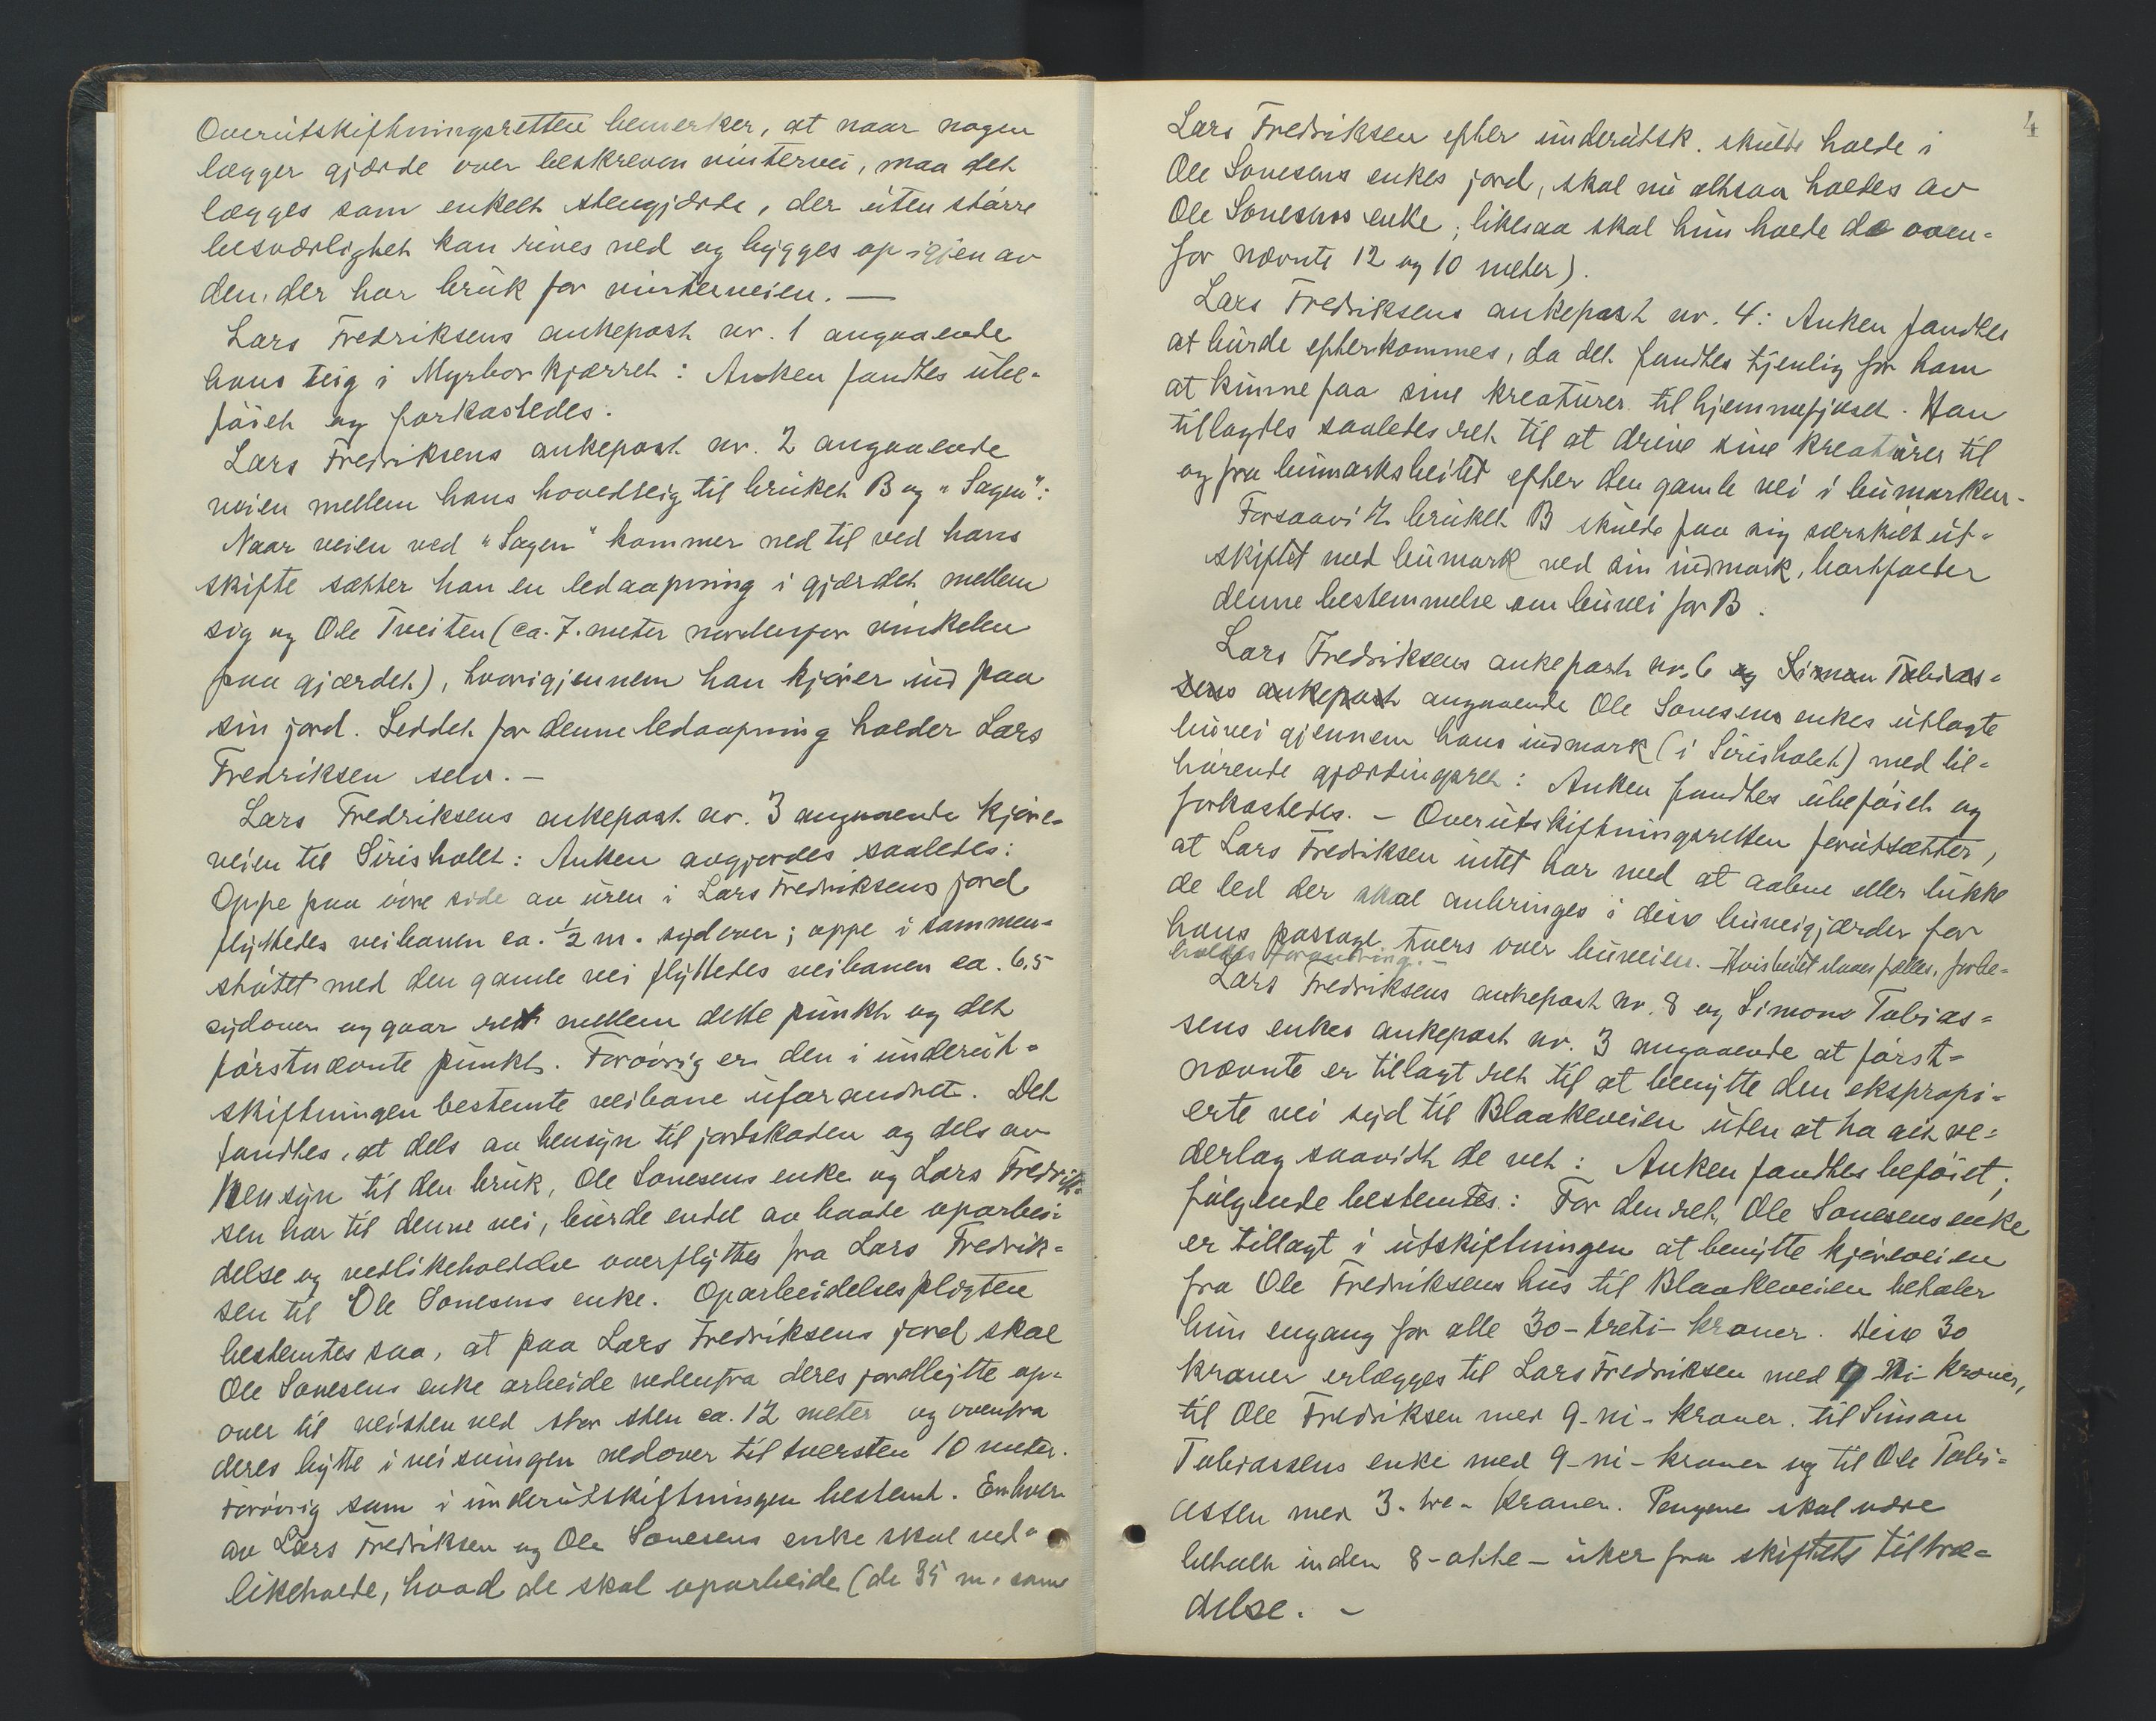 Overutskiftningsretten bemerker, at naar nogen
lægger gjærde over beskreven vintervei, maa det
lægges som enkelt stengjærde, der uten større
besværlighet kan rives ned og bygges op igjen av
den, der har bruk for vinterveien. —
Lars Fredriksens ankepost nr. 1 angaaende
hans teig i Myrborkjærret: Anken fandtes ube-
føiet og forkastedes.
Lars Fredriksens ankepost nr. 2 angaaende
veien mellem hans hovedteig til bruket B og "Sagen":
Naar veien ved "Sagen" kommer ned til ved hans
skifte sætter han en ledaapning i gjærdet mellem
sig og Ole Tveiten (ca. 7. meter nordenfor vinkelen
paa gjærdet), hvorigjennem han kjører ind paa
sin jord. Leddet for denne ledaapning holder Lars
Fredriksen selv. —
Lars Fredriksens ankepost nr. 3 angaaende kjøre-
veien til Sirisholet: Anken avgjordes saaledes:
Oppe paa øvre side av uren i Lars Fredriksens jord
flyttedes veibanen ca. ½ m. sydover; oppe i sammen-
støtet med den gamle vei flyttedes veibanen ca. 6.5
sydover og gaar ret mellem dette punkt og det
førstnævnte punkt. Forøvrig er den i underut-
skiftningen bestemte veibane uforandret. Det
fandtes, at dels av hensyn til jordskaden og dels av
hensyn til den bruk, Ole Sonesens enke og Lars Fredrik-
sen har til denne vei, burde endel av baade oparbei-
delse og vedlikeholdelse overflyttes fra Lars Fredrik-
sen til Ole Sonesens enke. Oparbeidelsespligten
bestemtes saa, at paa Lars Fredriksens jord skal
Ole Sonesens enke arbeide nedenfra deres jordbytte op-
over til veisten ved stor sten ca. 12 meter og ovenfra
deres bytte i veisvingen nedover til tversten 10 meter.
Forøvrig som i underutskiftningen bestemt. Enhver
av Lars Fredriksen og Ole Sonesens enke skal ved-
likeholde, hvad de skal oparbeide (de 35 m. som
4
Lars Fredriksen efter underutsk. skulde holde i
Ole Sonesens enkes jord, skal nu altsaa holdes av
Ole Sonesens enke; likesaa skal hun holde de oven-
for nævnte 12 og 10 meter).
Lars Fredriksens ankepost nr. 4: Anken fandtes
at burde efterkommes, da det fandtes tjenlig for ham
at kunne faa sine kreaturer til hjemmefjøset. Han
tillagdes saaledes ret til at drive sine kreaturer til
og fra bumarksbeitet efter den gamle vei i bumarken.
Forsaavidt bruket B skulde faa sig særskilt ut-
skiftet med bumark ved sin indmark, bortfalder
denne bestemmelse om buvei for B.
Lars Fredriksens ankepost nr. 6 og Simon Tobias-
sens ankepost angaaende Ole Sonesens enkes utlagte
buvei gjennem hans indmark (i Sirisholet) med til-
hørende gjærdingsret: Anken fandtes ubeføiet og
forkastedes. – Overutskiftningsretten forutsætter,
at Lars Fredriksen intet har med at aabne eller lukke
de led der skal anbringes i disse buveigjærder for
hans passage tvers over buveien. Hvis beitet utlaes fælles, forbe-
holdes forandring. –
Lars Fredriksens ankepost nr. 8 og Simons Tobias-
sens enkes ankepost nr. 3 angaaende at først-
nævnte er tillagt ret til at benytte den ekspropi-
erte vei syd til Blaakeveien uten at ha git ve-
derlag saavidt de vet: Anken fandtes beføiet;
følgende bestemtes: For den ret, Ole Sonesens enke
er tillagt i utskiftningen at benytte kjøreveien
fra Ole Fredriksens hus til Blaakeveien betaler
hun engang for alle 30 – treti – kroner. Disse 30
kroner erlægges til Lars Fredriksen med 9 ni – kroner,
til Ole Fredriksen med 9 – ni – kroner, til Simon
Tobiassens enke med 9 – ni – kroner og til Ole Tobi-
assen med 3 – tre – kroner. Pengene skal være
betalt inden 8 – otte – uker fra skiftets tiltræ-
delse. –